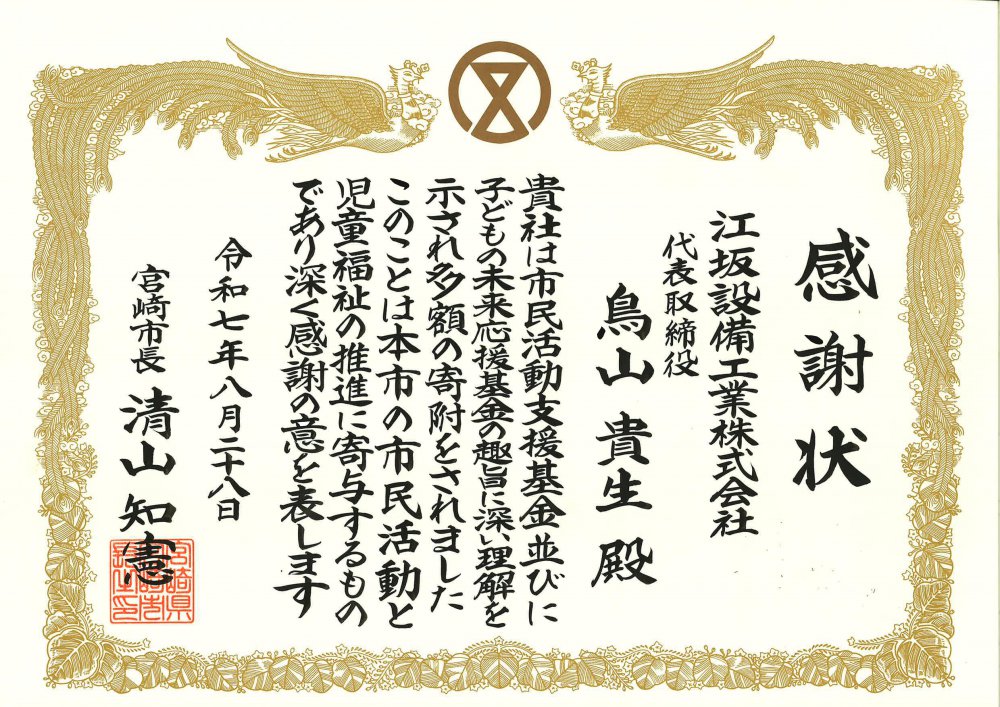 感謝状
江坂設備工業株式会社
代表取締役
鳥山貴生殿
貴社は市民活動支援基金並びに
子どもの未来応援基金の趣旨に深い理解を
示され多額の寄附をされました
このことは本市の市民活動と
児童福祉の推進に寄与するもの
であり深く感謝の意を表します
令和七年八月二十八日
宮崎市長 清山知憲